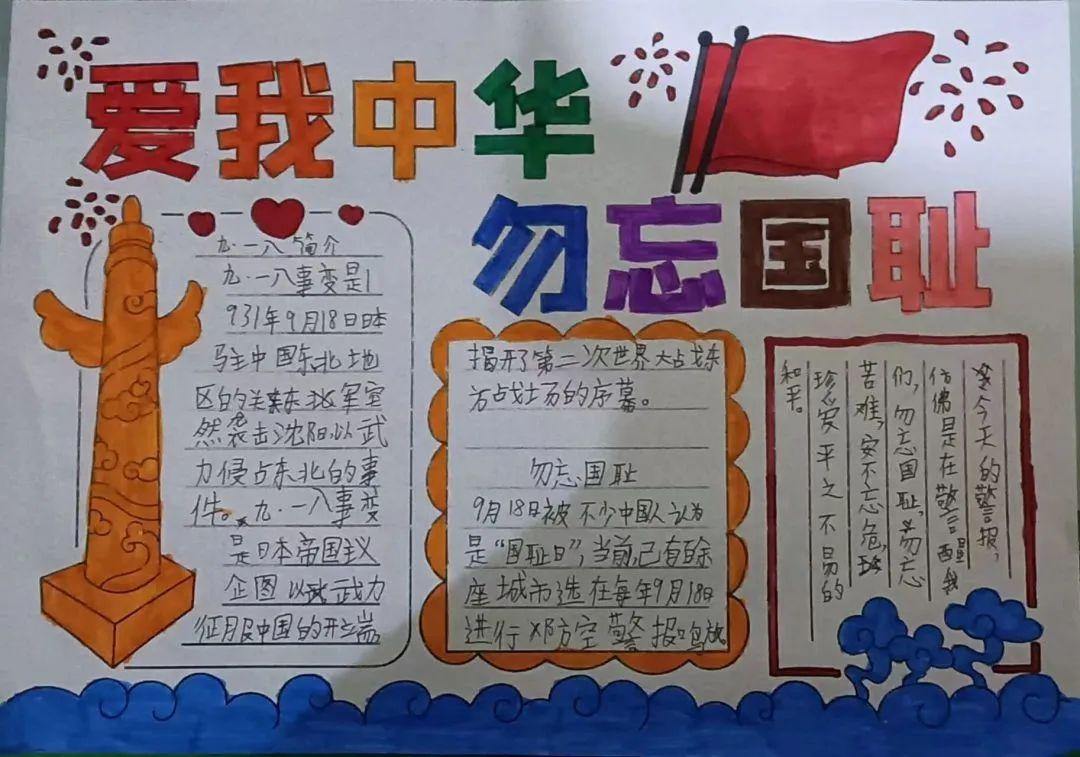 爱我中华
勿忘国耻
九·一八简介
九·一八事变是1
931年9月18日日本
驻中国东北地
区的关东北军突
然袭击沈阳以武
力侵占东北的事
件。九·一八事变
是日本帝国主义
企图以武力
征服中国的开端
揭开了第二次世界大战东
方战场的序幕。
勿忘国耻
9月18日被不少中国人认为
是“国耻日”,当前,已有百余
座城市选在每年9月18日
进行 防空警报鸣放。
今天的警报,
仿佛是在警醒我
们,勿忘国耻,勿忘
苦难,安不忘危,
珍爱平之不易的
和平。